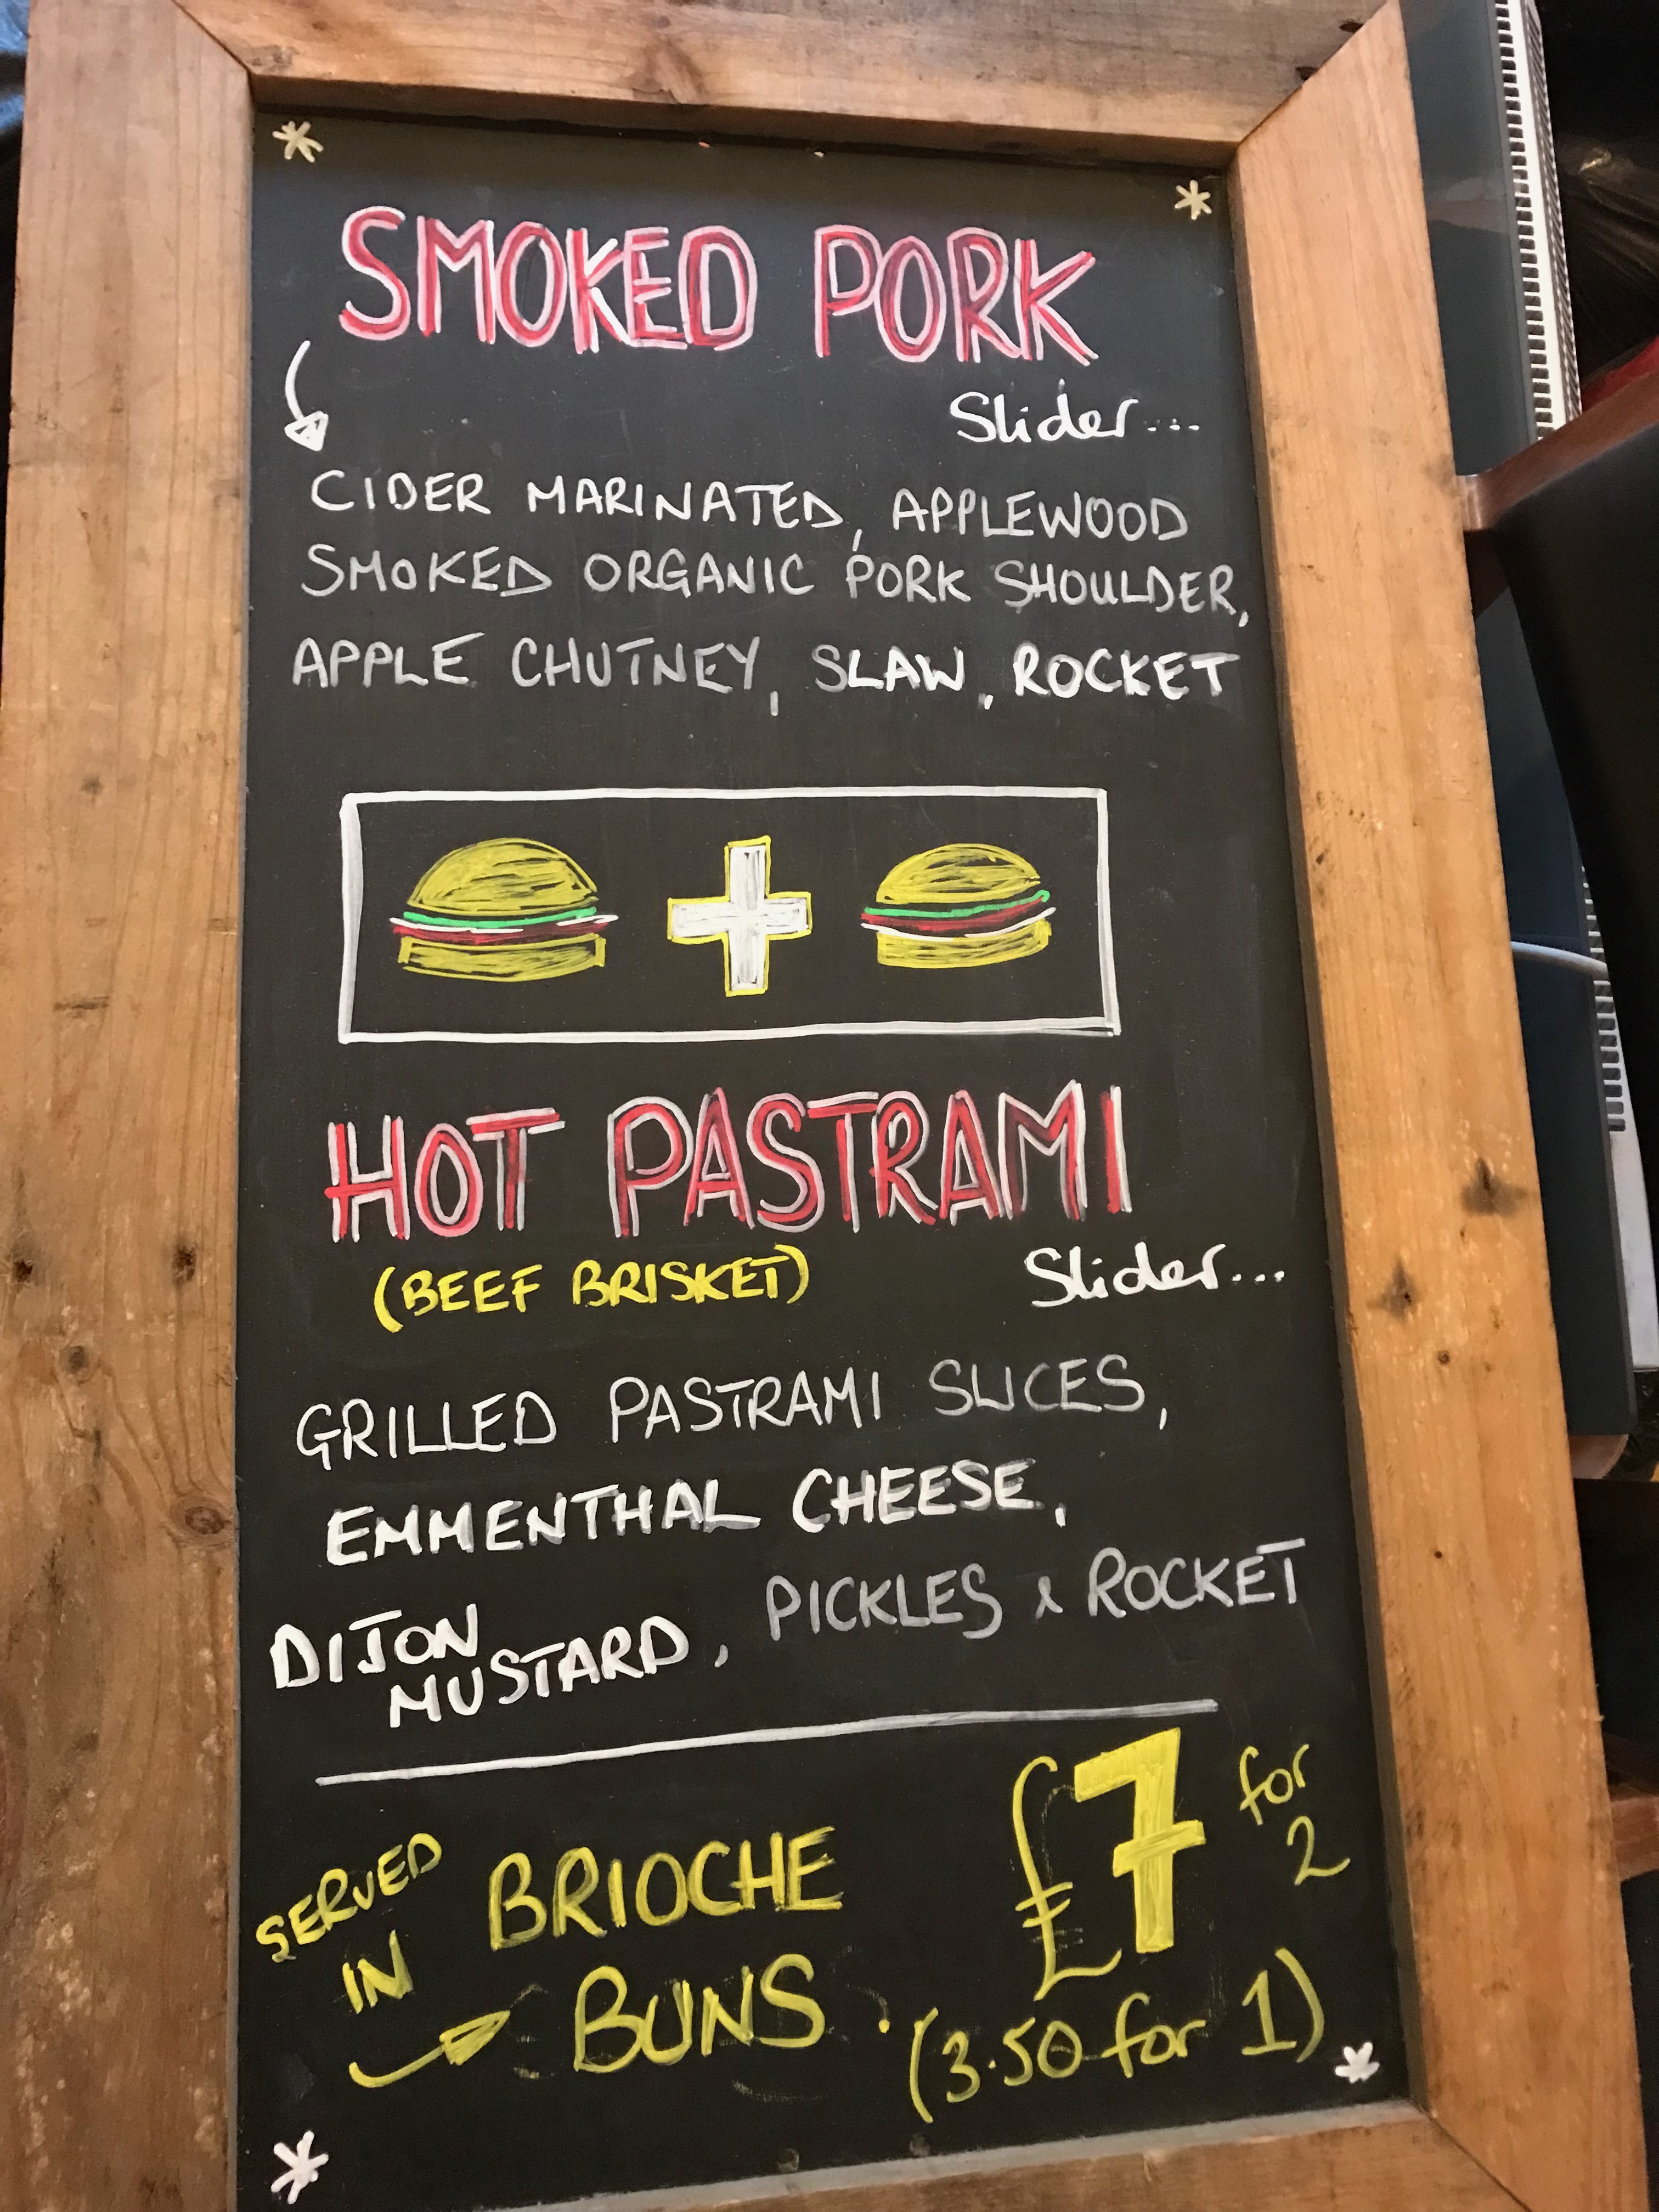 SMOKED PORK
Slider...
CIDER MARINATED, APPLEWOOD
SMOKED ORGANIC PORK SHOULDER,
APPLE CHUTNEY, SLAW, ROCKET
HOT PASTRAMI
(BEEF BRISKET)
Slider...
GRILLED PASTRAMI SLICES,
EMMENTHAL CHEESE,
DIJON
MUSTARD, PICKLES & ROCKET
SERVED
IN
BRIOCHE
BUNS.
£7 for
2
(3.50 for 1)